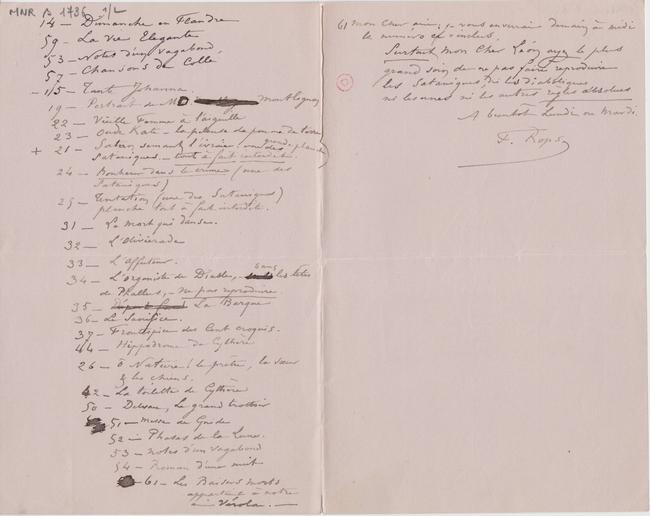 MNR B 1736 1/2
14 — Dimanche en Flandre
59 — La Vie Elégante
53 — Notes d'un vagabond
57 — Chansons de Collé
15 — Tante Johanna
19 — Portrait de M
22 — Vieille Femme à l'aiguille
23 — Oude Kate — la peleuse de pomme de terre
+ 21 — Satan semant l'ivraie (une des grand. planches
Sataniques — tout à fait interdite
24 — Bonheur dans le crime (une des
Sataniques)
25 — Tentation (une des Sataniques)
planche tout à fait interdite.
31 — La mort qui danse.
32 — L'Olivierade
33 — L'affuteur.
34 — L'organiste du Diable, — sans les têtes
de Phallus, — ne pas reproduire
35 — La Barque
36 — Le Sacrifice.
37 — Frontispice des Cent croquis.
44 — Hippodrome de Cythère
26 — ô Nature! le prêtre, la sœur
& les chiens.
42 — La toilette de Cythère
50 — Le grand trottoir
51 — Messe de Gnide
52 — Phases de la Lune.
53 — Notes d'un vagabond
54 — Roman d'une nuit
61 — Les Baisers morts
appartient à notre
ami Vérola. —
61 Mon cher ami; je vous enverrai demain à midi
le numéro ci-inclus.
Surtout, mon Cher Léon ayez le plus
grand soin de ne pas faire reproduire
les Sataniques, ni les diaboliques
ni les unes ni les autres règles absolues
A bientôt Lundi ou Mardi.
F. Rops